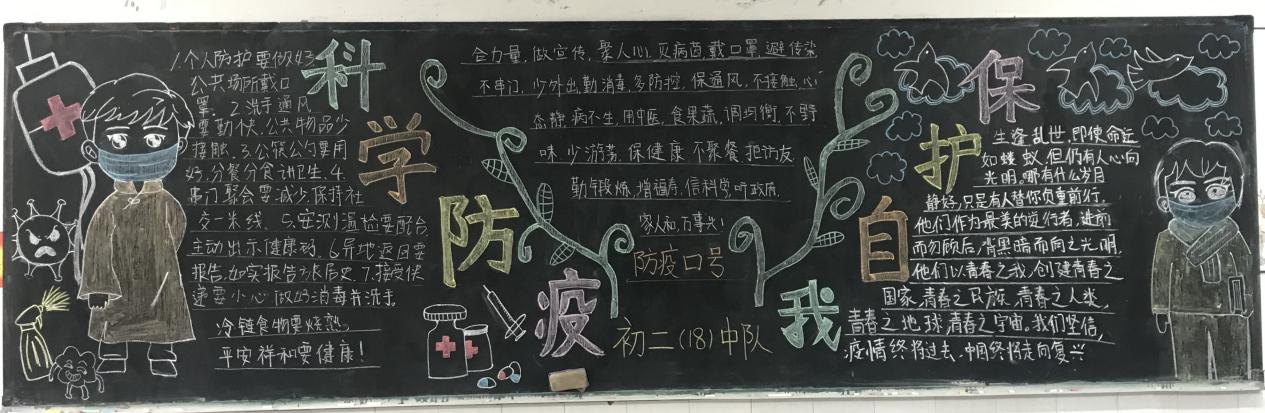 科学防疫
自我保护
1.个人防护要做好
公共场所戴口
罩。2.洗手通风
要勤快,公共物品少
接触,3.公筷公勺要用
好,分餐分食讲卫生.4.
串门聚会要减少.保持社
交一米线。5.实测温检要配合
主动出示健康码。6.异地返回要
报告,如实报告
7.接受快
递要小心做好消毒并洗手
冷链食物要烧熟。
平安祥和要健康!
合力量,做宣传,聚人心,灭病菌,戴口罩,避传染
不串门,少外出,勤消毒,多防控,保通风,不接触,心
态静,病不生,用中医,食果蔬,调均衡,不野
味,少游荡,保健康,不聚餐,拒访友
勤锻炼,增福寿,信科学,听政府
家人和,万事兴!
防疫口号
初二(18)中队
生逢乱世,即使命运
如蝼蚁,但仍有人心向
光明,哪有什么岁月
静好,只是有人替你负重前行,
他们作为最美的逆行者,进前
而勿顾后,背黑暗而向之光明,
他们以青春之我,创建青春之
国家,青春之民族,青春之人类,
青春之地球,青春之宇宙,我们坚信,
疫情终将过去,中国终将走向复兴